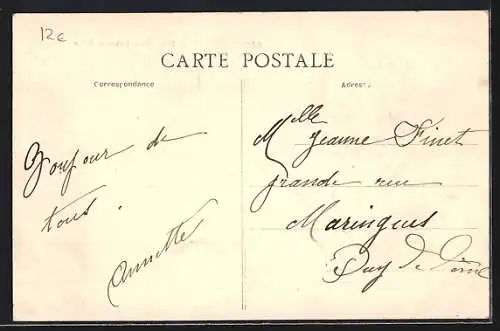 12e
CARTE POSTALE
Correspondance
Adresse
Bonjour de
tous.
Annette
Mlle Jeanne Finet
grande rue
Maringues
Puy de Dôme